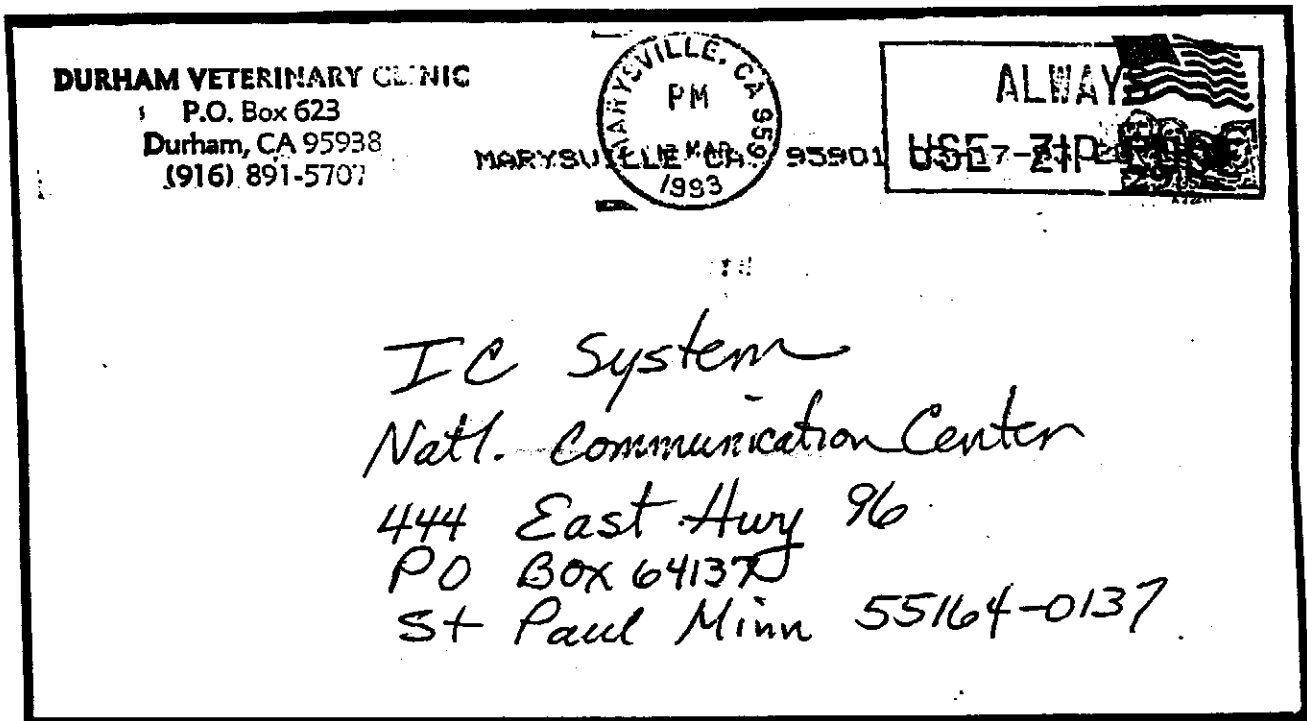 DURHAM VETERINARY CLINIC
P.O. Box 623
Durham, CA 95938
(916) 891-5707
MARYSVILLE, CA 959
PM
MAR
1993
MARYSVILLE CA. 95901
ALWAYS
USE ZIP CODE
29
IC System
Natl. Communication Center
444 East Hwy 96
PO Box 64137
St Paul Minn 55164-0137